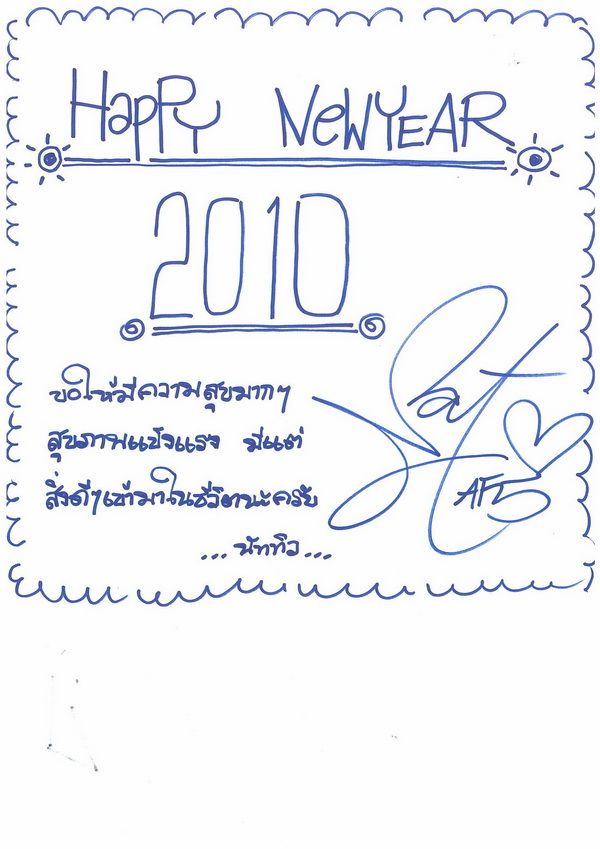 HaPPY NeWYEAR
2010
ขอให้มีความสุขมากๆ
สุขภาพแข็งแรง มีแต่
สิ่งดีๆเข้ามาในชีวิตนะครับ
...นัททิว...
Nat
AF5